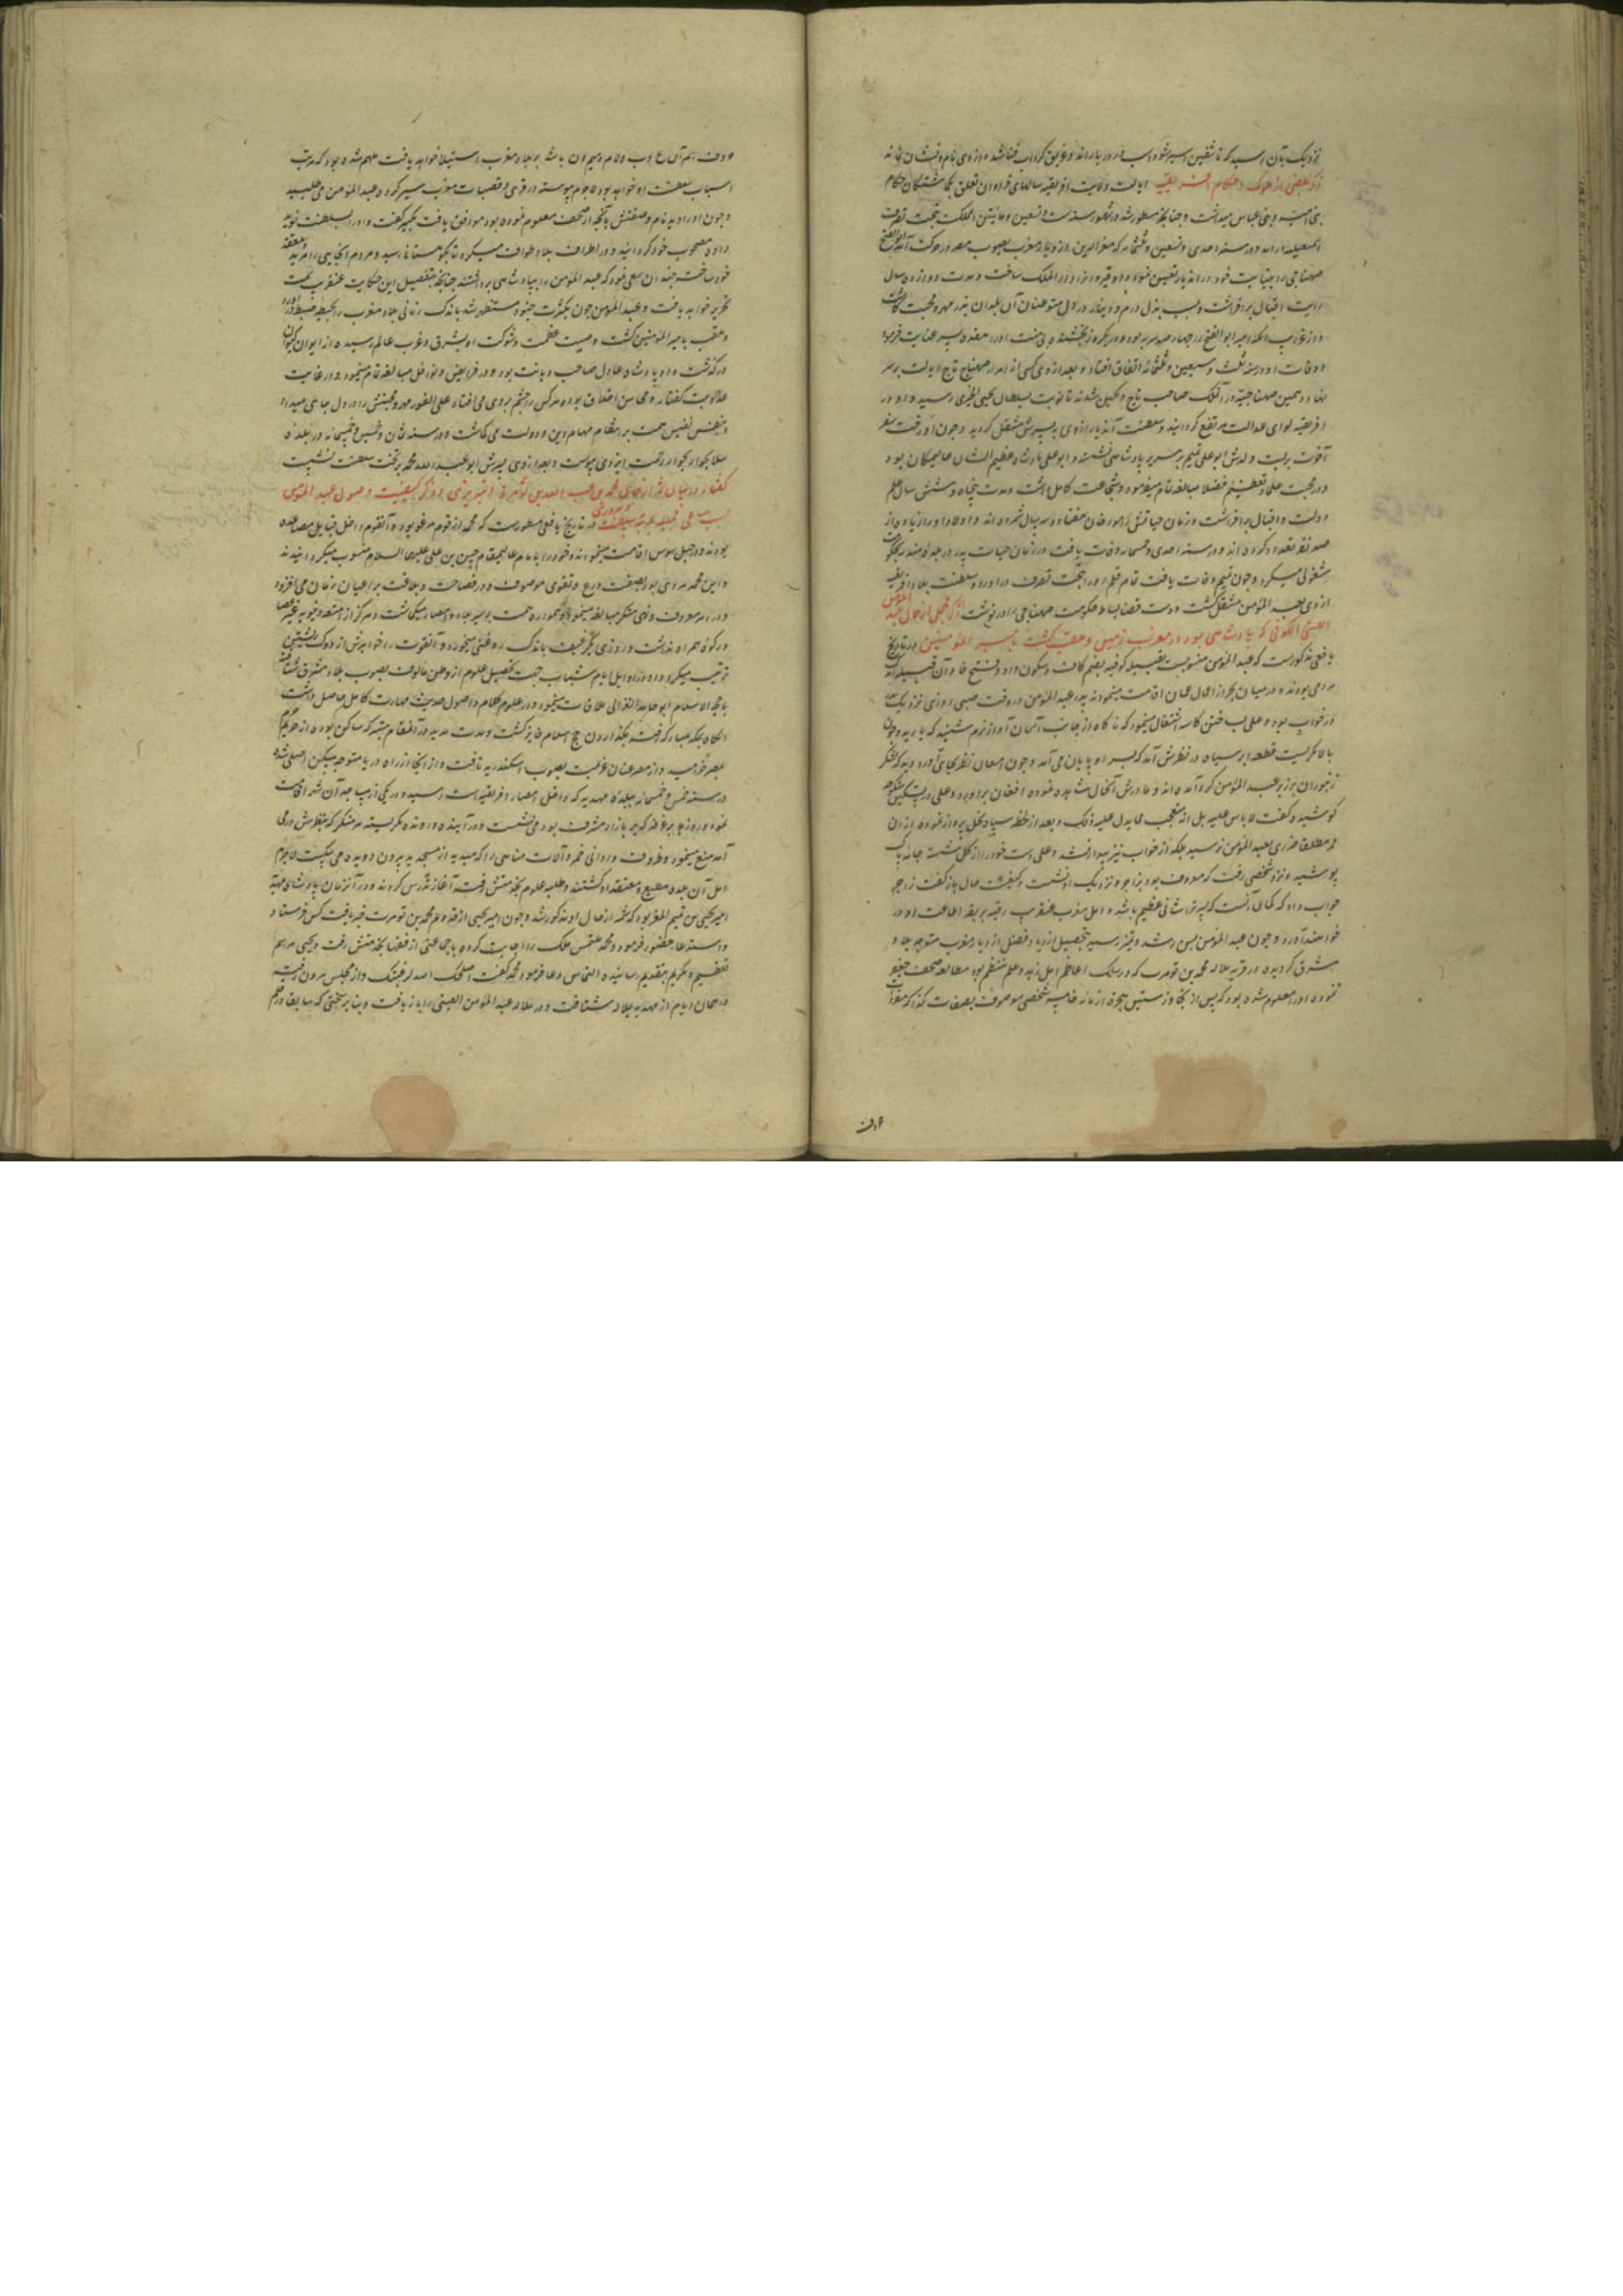 نزدیک بآن رسید که ناشقین اسیر شود اسب در دریا راند و غریق گرداب فنا شد و از وی نام و نشان نماند
ذکر بعضی از ملوک و حکام افریقیه ایالت ولایت افریقیه سالهای فراوان تعلق بگماشتگان حکام
بنی امیه و بنی عباس میداشت و چنانچه مسطور شد در شهور سنه ست و تسعین و مائتین آن مملکت بتحت تصرف
اسمعیلیه درآمد و در سنه احدی و ستین و ثلثمائه که معز الدین از دیار مغرب بصوب مصر در حرکت آمد ابوالفتح
صنهاجی را بنیابت خود در آن دیار تعیین نمود و او قیروان را دار الملک ساخت و مدت دوازده سال
رایت اقبال برافراشت و بسبب بذل درم و دینار در دل متوطنان آن بلدان بذر مهر و محبت کاشت
و از غرایب آنکه امیر ابو الفتح را چهار صد سریه بود و در یکروز بخشنده بی منت او را هفده پسر عنایت فرمود
و وفات او در سنه ثلث و سبعین و ثلثمائه اتفاق افتاد و بعد از وی کسی از امراء صنهاج تاج ایالت بر سر
نهاد و همچنین صنهاجیه در آن ملک صاحب تاج و نگین شدند تا نوبت بسلطان یحیی الحمیری رسید و او در
افریقیه لوای عدالت مرتفع گردانید و سلطنت آن دیار از وی به پسرش منتقل گردید و چون او رخت سفر
آخرت بربست ولدش ابو علی تمیم بر سریر پادشاهی نشست و ابو علی پادشاه عظیم الشان عالیمکان بود
و در محبت علما و تعظیم فضلا مبالغه تمام میفرمود و شجاعت کامل داشت و مدت پنجاه و شش سال علم
دولت و اقبال برافراشت و زمان حیاتش را مورخان هفتاد و سه سال شمرده اند و اولاد او را زیاده از
صد نفر تعداد کرده اند و در سنه احدی و خمسمائه وفات یافت در زمان حیات پدر در بلده مهدیه بحکومت
مشغولی میکرد و چون تمیم وفات یافت تمام قلمرو را بتحت تصرف درآورد و سلطنت بلاد افریقیه
از وی بعبد المؤمن منتقل گشت و دست قضا بساط حکومت صنهاجی را در نوشت ذکر مجملی از حال عبد المؤمن
العیسی الکوفی که پادشاهی بود در مغرب زمین و ملقب گشت بامیر المؤمنین در تاریخ
یافعی مذکورست که عبد المؤمن منسوبست بقبیله کوفیه بضم کاف و سکون واو و فتح فا و آن قبیله اندک
مردمی بودند و در میان بحر از اعمال عمان اقامت مینمودند پدر عبد المؤمن در وقت صبی روزی نزدیک پدر
در خواب بود و علی بساختن کاسه اشتغال مینمود که ناگاه از جانب آسمان آواز نرم شنید که باریه و چون
بالا نگریست قطعه ابر سیاه در نظرش آمد که بسر او پایان می آمد و چون امعان نظر بجای آورد دید که لشکر
زنبوران بر زبر عبد المؤمن گرد آمده اند و مادرش آنحال مشاهده نموده افغان برآورد و علی در تسکین منکوحه
کوشیده گفت لا باس علیه بل انی متعجب مما یدل علیه ذلک و بعد از لحظه سپاه نحل پرواز نموده از آن
ممر مطلقا ضرری بعبد المؤمن نرسید بلکه از خواب نیز بیدار نشد و علی دست خود را از گل شسته جامه پاک
پوشید و نزد شخصی رفت که معروف بود بزاجر و نزدیک او نشست و کیفیت حال بازگفت زاجر
جواب داد که گمان آنست که پسر ترا شانی عظیم باشد و اهل مغرب عنقریب رقبه بربقه اطاعت او در
خواهند آورد و چون عبد المؤمن بسن رشد و تمیز رسید بتحصیل از دیار مغرب متوجه بلاد
مشرق گردیده در قریه ملاله محمد بن تومرت که در سلک اعاظم اهل زهد و علم منتظم بود مطالعه صحف جفر
نموده او را معلوم شده بود که پس از تجاوز سنین هجرة از مائه خامسه شخصی موصوف بصفات کذا که مفردات
حروف
حروف اسم آن ع ب د ا ل م و م ن باشد بر بلاد مغرب استیلا خواهد یافت ملهم شده بود که مرتب
اسباب سلطنت او خواهد بود لاجرم پیوسته در قری و قصبات مغرب سیر کرده عبد المؤمن می طلبید
و چون او را دید نام و صفتش بآنچه از صحف معلوم نموده بود موافق یافت تکبیر گفت و او را بسلطنت نوید
داده مصحوب خود گردانید و در اطراف بلاد طوافت میکرد تا بکوهستانها رسید و مردم آنجایی را مرید و معتقد
خود ساخت چندان سعی نمود که عبد المؤمن را بپادشاهی برداشتند چنانچه تفصیل این حکایت عنقریب سمت
تحریر خواهد یافت و عبد المؤمن چون بکثرت جنود مستظهر شد باندک زمانی بلاد مغرب را بحیطه ضبط درآورد
و ملقب بامیر المؤمنین گشت وصیت عظمت و شوکت او بشرق و غرب عالم رسیده از ایوان کیوان
درگذشت و او پادشاه عادل صاحب دیانت بود و در فرایض و نوافل مبالغه تمام مینمود و در غایت
عذوبت گفتار و محاسن اخلاق بود و هر کس را چشم بر وی می افتاد علی الفور مهر و محبتش را در دل جای میداد
و بنفس نفیس همت بر انتظام مهام دین و دولت می گماشت و در سنه ثمان و خمسین و خمسمائه در بلده
سلا بجوار رحمت ایزدی پیوست و بعد از وی پسرش ابو عبد الله محمد بر تخت سلطنت نشست
گفتار در بیان شمه از حال محمد بن عبد الله بن تومرت و ذکر کیفیت وصول عبد المؤمن
بمرتبه سلطنت در تاریخ یافعی مسطورست که محمد از قوم هرغه بود و آنقوم داخل قبایل مصامده
بودند و در جبل سوس اقامت مینمودند و خود را بامام عالیمقام حسن بن علی علیهما السلام منسوب میگردانیدند
و این محمد مردی بود بصفت ورع و تقوی موصوف و در فصاحت و بلاغت بر اعیان زمان می افزود
و در امر معروف و نهی منکر مبالغه مینمود و همواره همت بر سیر بلاد و امصار میگماشت و هرگز از امتعه دنیویه غیر عصا
و رکوة همراه نداشت و در روزی یک رغیف باندک روغنی میخورد و آنقوت را خواهرش از دوک رشتن
ترتیب میکرد و او در اوایل ایام شباب جهت تحصیل علوم از وطن مالوف بصوب بلاد مشرق شتافت
با حجة الاسلام ابو حامد الغزالی ملاقات نمود و در علوم کلام و اصول حدیث مهارت کامل حاصل داشت
آنگاه بمکه مبارکه رفته بگذاردن حج اسلام فایز گشت و مدت مدید در آنمقام متبرکه ساکن بوده از حریم حرم
بمصر خرامید و از مصر عنان عزیمت بصوب اسکندریه تافت و از آنجا از راه دریا متوجه مسکن اصلی شده
در سنه خمس و خمسمائه ببلده مهدیه که داخل امصار افریقیه است رسید و در یکی از مساجد آن شهر اقامت
نموده و روزها بر غرفه که بر بازار مشرف بود می نشست و در آینده و رونده نگریسته هر منکر که بنظرش درمی
آمد منع مینمود و ظروف و اوانی خمر و آلات مناهی را که میدید از مسجد بیرون دویده می شکست لاجرم
اهل آن بلده مطیع و معتقد او گشتند و طلبه علوم بخدمتش رفته آغاز تدرس کردند و در آنزمان پادشاه مهدیه
امیر یحیی بن تمیم المعز بود که شمه از حال او مذکور شد و چون امیر یحیی از قدوم محمد بن تومرت خبر یافت کس فرستاد
و استدعاء حضور فرمود و محمد ملتمس ملک را اجابت کرده با جماعتی از فقها بخدمتش رفت و یحیی مراسم
تعظیم و تکریم بتقدیم رسانیده التماس دعا فرمود محمد گفت اصلحک الله لرعیتک و از مجلس بیرون رفته
در همان ایام از مهدیه بملاله شتافت و در ملاله عبد المؤمن العیسی را بازیافت و بنابر سخنی که سابقا رقم